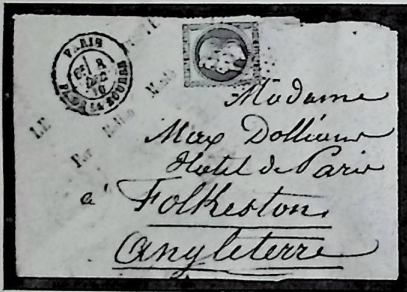 PARIS
8
DEC
70
PL. DE LA BOURSE
LE
Par
Madame
Max Dollians
Hotel de Paris
à Folkeston
Angleterre